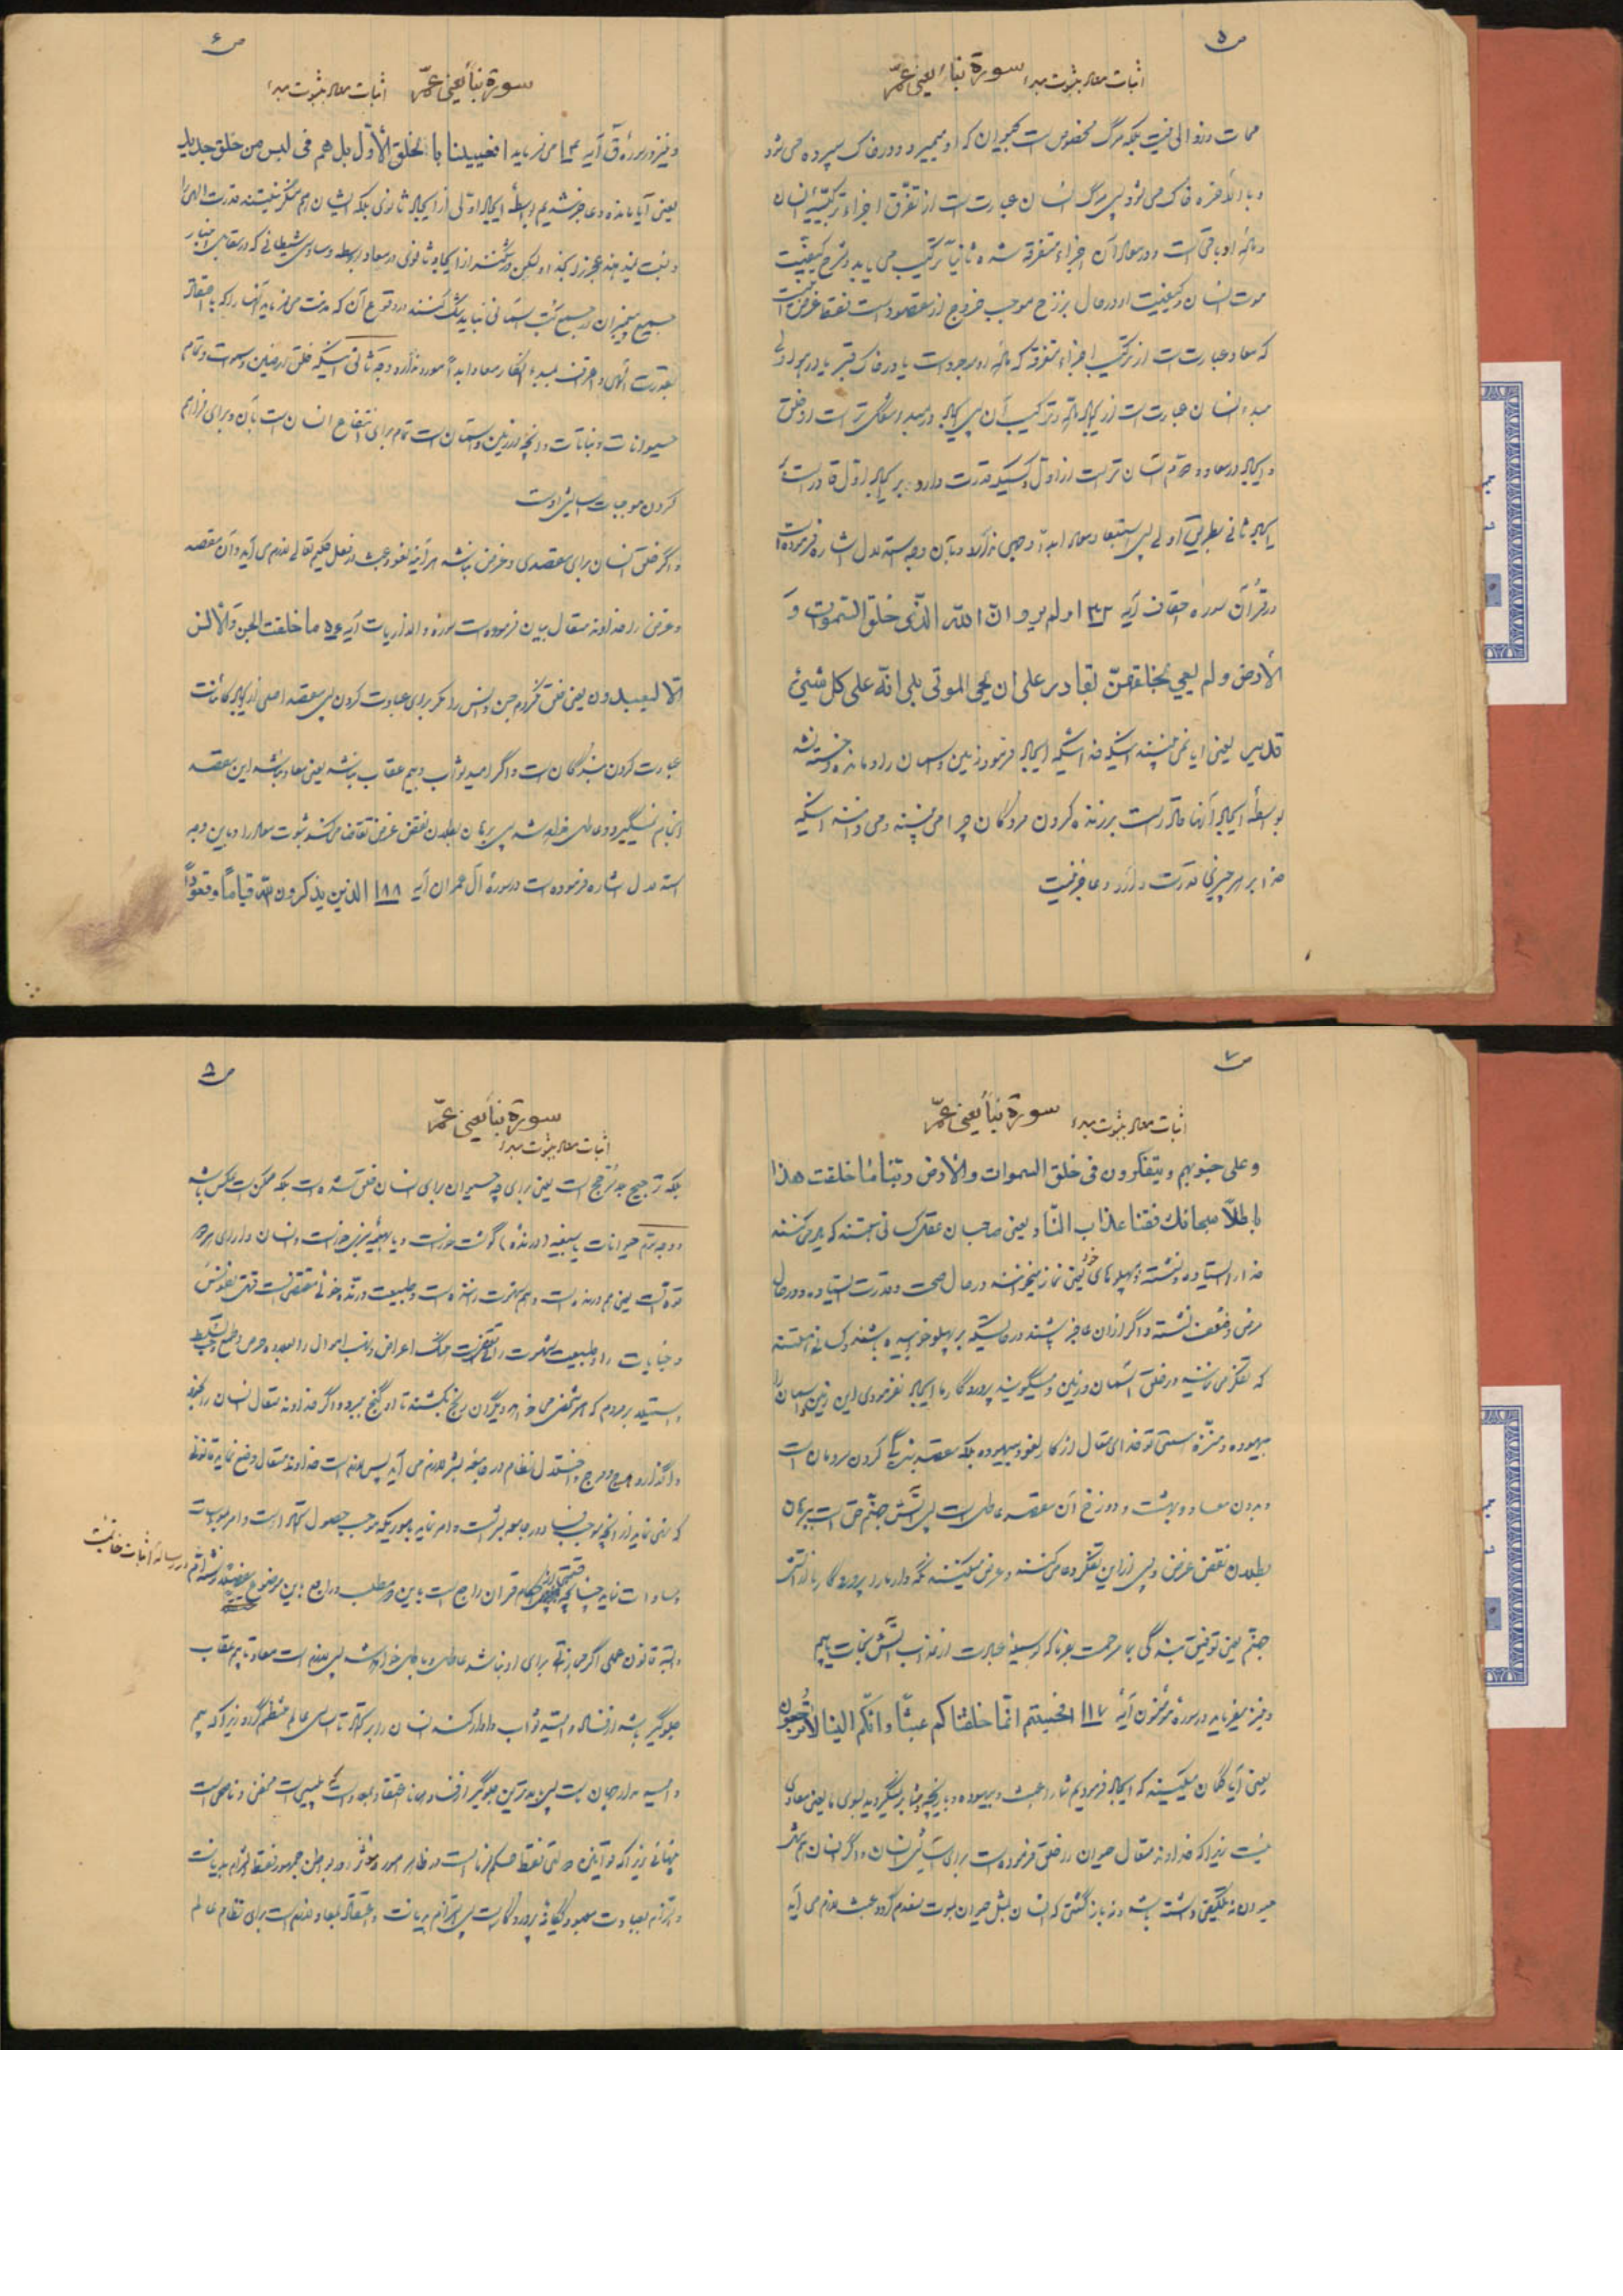 ص ۵
اثبات معاد بثبوت مبدء سورة نبأ یعنی عمّ
ممات و زوالی نیست بلکه مرگ مخصوص است بحیوان که او میمیرد و در خاک سپرده می شود
و بالأخره خاک می شود پس مرگ انسان عبارت است از تفرّق اجزاء ترکیبیّه انسان
و مادّه او باقی است و در معاد آن اجزاء متفرقه شده ثانیاً ترکیب می یابد و شرح کیفیّت
موت انسان و کیفیّت او در حال برزخ موجب خروج از مقصود است فقط غرض اینست
که معاد عبارت است از ترکیب اجزاء متفرقه که مادّه او موجود است یا در خاک قبر یا در
مبدء انسان عبارت است از ایجاد مادّه و ترکیب آن پس ایجاد در مبدء مشکل تر است از خلق
و ایجاد در معاد و دوّم آسان تر است از اوّل و کسیکه قدرت دارد بر ایجاد اوّل قادر است بر
ایجاد ثانی بطریق اولی پس استبعاد معاد ابداً وجهی ندارد و بآن وجه استدلال اشاره فرموده است
در قرآن سوره احقاف آیه ۳۲ اولم یروا انّ اللّه الّذی خلق السّموات و
الأرض و لم یعی بخلقهنّ بقادر علی ان یحیی الموتی بلی انّه علی کل شیئ
قدیر یعنی ایا نمی بینند اینکه خدائیکه ایجاد فرمود زمین و آسمان را و مانده و خسته نشد
بواسطه ایجاد آنها قادر است بر زنده کردن مردگان چرا می بینند و می دانند اینکه
خدا بر هر چیزی قدرت دارد و عاجز نیست
ص ۶
سورة نبأ یعنی عمّ اثبات معاد بثبوت مبدء
و نیز در سورۀ ق آیه ۱۴ می فرماید افعیینا بالخلق الأوّل بل هم فی لبس من خلق جدید
یعنی آیا مانده و عاجز شدیم بواسطۀ ایجاد اوّلی از ایجاد ثانوی بلکه ایشان هم منکر نیستند قدرت الهی را
و نسبت نمیدهند عجز را بخداوند لیکن در شکّند از ایجاد ثانوی در معاد بواسطه وساوس شیطانی که در مقابل اخبار
جمیع پیغمبران در جمیع کتب آسمانی نباید شک کنند در وقوع آن که مذمت می فرماید آنها را که با اعتقاد
بقدرت الهی و اعتراف بمبدء انکار معاد ابداً مورد ندارد وجه ثانی اینکه خلق ارضین و سموات و تمام
حیوانات و نباتات و آنچه در زمین و آسمان است تمام برای انتفاع انسان است بآن و برای فراهم
کردن موجبات آسایش اوست
و اگر خلق انسان برای مقصدی و غرض نباشد هر آینه لغو و عبث در فعل حکیم تعالی لازم می آید و آن مقصد
و غرض را خداوند متعال بیان فرموده است سوره والذاریات آیه ۵۶ ما خلقت الجنّ والأنس
الّا لیعبدون یعنی خلق نکردم جن و انس را مگر برای عبادت کردن پس مقصد اصلی از ایجاد کائنات
عبادت کردن بندگان است و اگر امید ثواب و بیم عقاب نباشد یعنی معاد نباشد این مقصد
انجام نمیگیرد و عاطل خواهد شد پس برهان بطلان نقض غرض تقاضا می کند ثبوت معاد را و باین وجه
استدلال اشاره فرموده است در سورۀ آل عمران آیه ۱۸۸ الذین یذکرون للّه قیاماً و قعوداً
ص ۷
اثبات معاد بثبوت مبدء سورة نبأ یعنی عمّ
و علی جنوبهم و یتفکرون فی خلق السموات والأرض ربّنا ما خلقت هذا
باطلاً سبحانک فقنا عذاب النّار یعنی صاحبان عقل کسانی هستند که یاد می کنند
خدا را ایستاده و نشسته و بپهلوهای خود یعنی نماز میخوانند در حال صحت و قدرت ایستاده و در حال
مرض و ضعف نشسته و اگر از آن عاجز باشند در حالتیکه بر پهلو خوابیده باشند و کسانی هستند
که تفکر می نمایند در خلق آسمان و زمین و میگویند پروردگارا ایجاد نفرمودی این زمین و آسمان را
بیهوده و منزّه هستی تو خدای متعال از کار لغو و بیهوده بلکه مقصد بندگی کردن مردمان است
و بدون معاد و بهشت و دوزخ آن مقصد عاطل است پس آتش جهنّم حق است ببرهان
بطلان نقض غرض و پس از این تفکر دعا می کنند و عرض میکنند نگه دار ما را پروردگارا از آتش
جهنّم یعنی توفیق بندگی بما مرحمت بفرما که بوسیلۀ عبادت از عذاب آتش نجات یابیم
و نیز میفرماید در سورۀ مؤمنون آیۀ ۱۱۷ افحسبتم انّما خلقناکم عبثاً و انّکم الینا لا ترجعون
یعنی آیا گمان میکنید که ایجاد فرمودیم شما را عبث و بیهوده و بازیچه و شما بر نمیگردید بسوی ما یعنی معادی
نیست زیرا که خداوند متعال حیوان را خلق فرموده است برای آسایش انسان و اگر انسان هم مثل
حیوان نه تکلیفی داشته باشد و نه بازگشتی که انسان مثل حیوان بموت منعدم گردد عبث لازم می آید
ص ۸
سورة نبأ یعنی عمّ
اثبات معاد بثبوت مبدء
بلکه ترجیح بلا مرجّح است یعنی برای چه حیوان برای انسان خلق شده است بلکه ممکن است عکس باشد
و وجه سوّم حیوانات یا سبعیّه (درنده) گوشت خوار است و یا بهیمیّه خوار است و انسان دارای هر دو
قوّه است یعنی هم درنده است و هم شهوت راننده است و طبیعت درنده خوئی مقتضی است قتل نفوس
و جنایات را و طبیعت شهوت رانی مقتضی است هتک اعراض و نهب اموال را بعلاوه حرص و طمع و حبّ تسلّط
و استیلاء بر مردم که هر شخصی می خواهد دیگران رنج بکشند تا او گنج ببرد و اگر خداوند متعال انسان را بخود
واگذارد هرج و مرج و اختلال نظام در جامعۀ بشر لازم می آید پس لازم است خداوند متعال وضع نماید قانونی
که نهی نماید از آنچه موجب فساد در جامعه بشر است و امر نماید بأموریکه موجب حصول اتحاد است و امر بمواسات
و مساوات نماید چنانچه احکام قران راجع است باین دو مطلب و راجع باین موضوع نوشته ام در رساله اثبات خاتمیّت
و البته قانون عملی اگر مجازاتی برای او نباشد عاطل و باطل خواهد شد پس لازم است معاد تا بیم عقاب
جلوگیر باشد از فساد و امید ثواب وادار کند انسان را بر اتحاد تا اساس عالم منظم گردد زیرا که بیم
و امید مدار جهان است پس بهترین جلوگیر از فساد همانا اعتقاد بمعاد است که پلیس است مخفی و ناصحی است
پنهانی زیرا که قوانین دولتی فقط حکم فرما است در ظاهر امور و مؤثر در بواطن جمهور فقط الزام بدیانت
و التزام بعبادت معبود یگانه پروردگار است پس التزام بدیانت و اعتقاد بمعاد لازم است برای نظام عالم